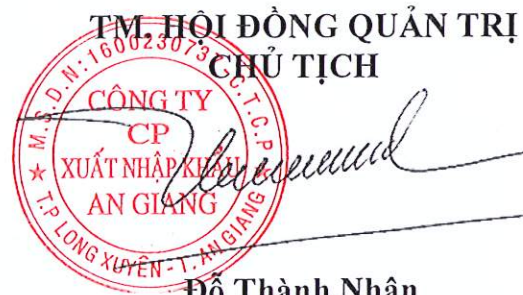 TM. HỘI ĐỒNG QUẢN TRỊ
CHỦ TỊCH
M.S.D.N: 1600230737-C.T.C.P
CÔNG TY
CP
XUẤT NHẬP KHẨU
AN GIANG
T.P LONG XUYÊN - T. AN GIANG
Đỗ Thành Nhân